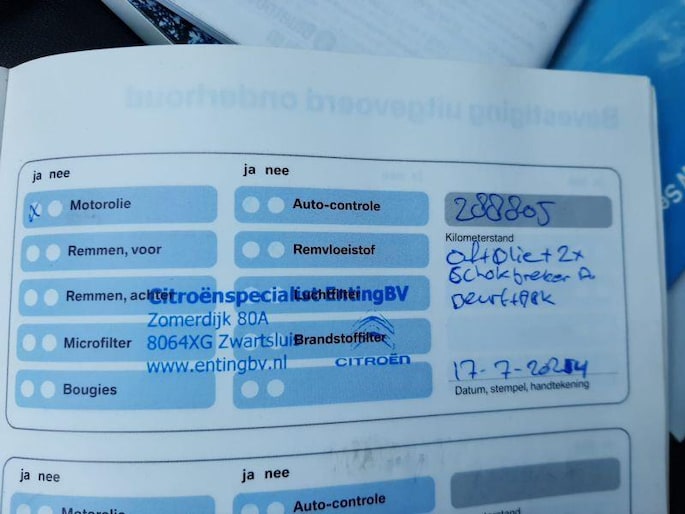 Bevestiging uitgevoerd onderhoud
ja nee
ja nee
x Motorolie
Auto-controle
288805
Kilometerstand
Remmen, voor
Remvloeistof
Olie + 2x
Schokbreker A.
Remmen, achter
Luchtfilter
Citroënspecialist Enting BV
Zomerdijk 80A
8064XG Zwartsluis
www.entingbv.nl
CITROËN
Microfilter
Brandstoffilter
17-7-2024
Datum, stempel, handtekening
Bougies
ja nee
ja nee
Motorolie
Auto-controle